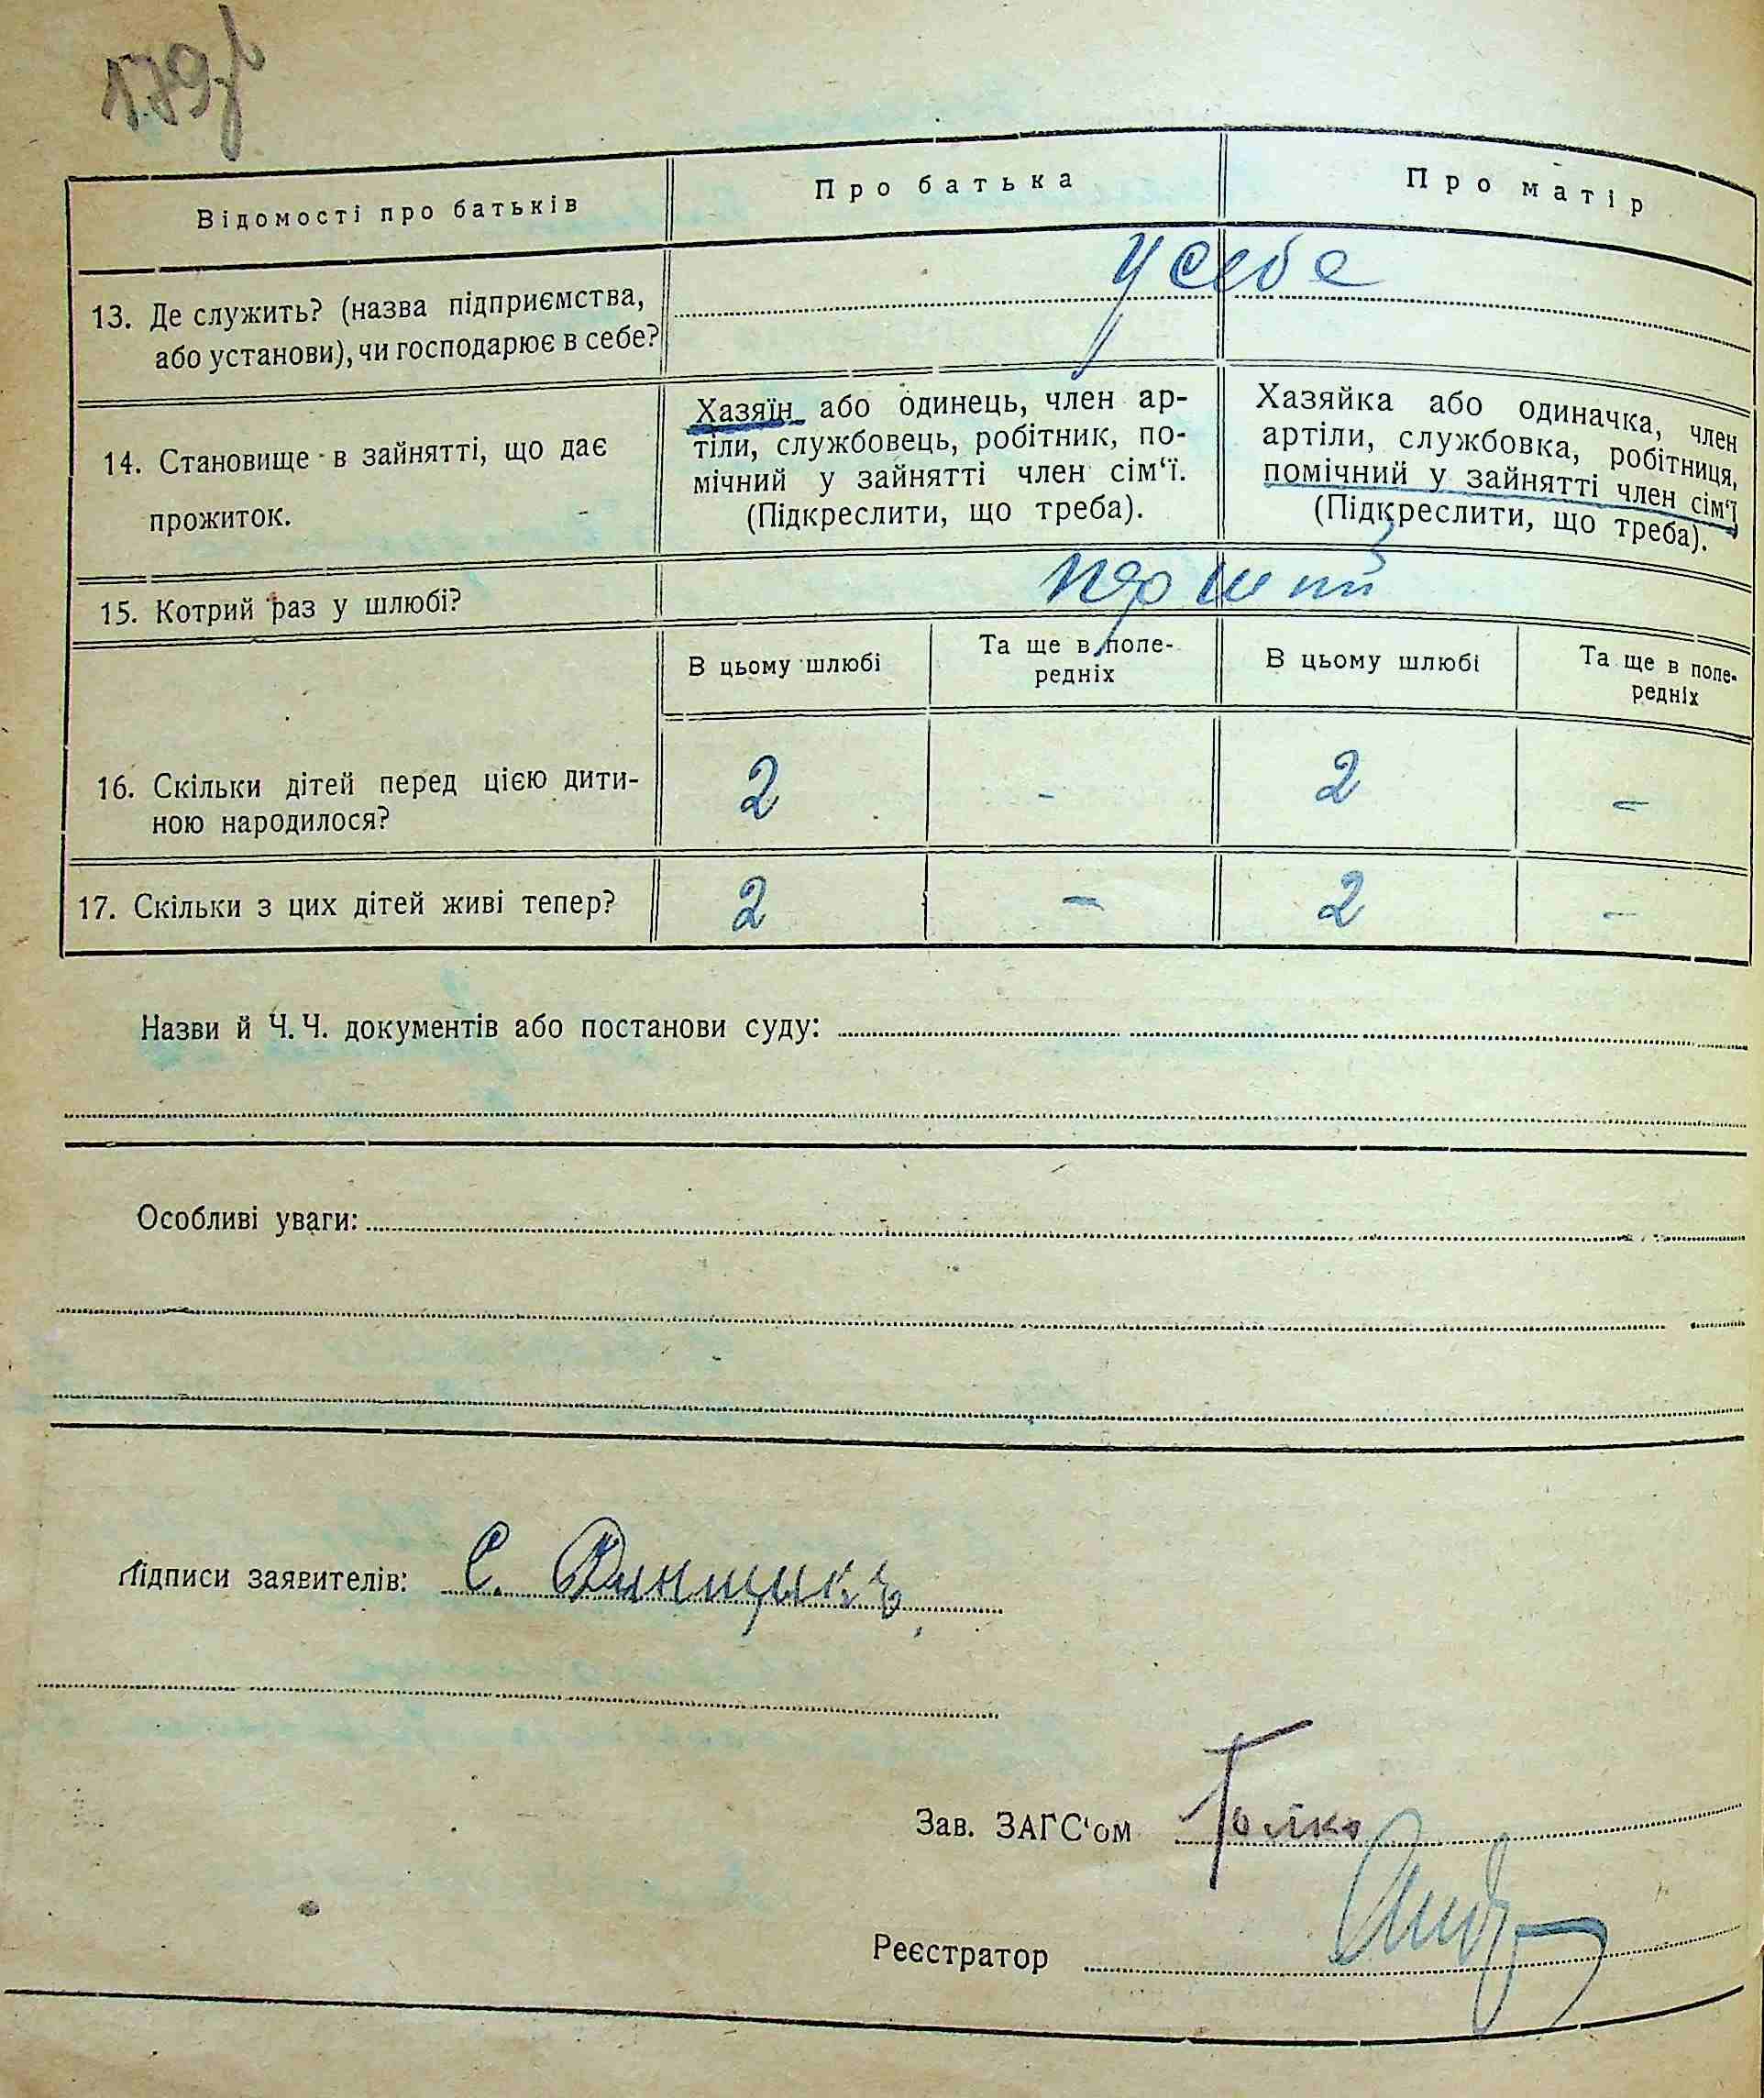 179
Відомості про батьків
Про батька
Про матір
13. Де служить? (назва підприємства,
або установи), чи господарює в себе?
у себе
14. Становище в зайнятті, що дає
прожиток.
Хазяїн або одинець, член ар-
тіли, службовець, робітник, по-
мічний у зайнятті член сім'ї.
(Підкреслити, що треба).
Хазяйка або одиначка, член
артіли, службовка, робітниця,
помічний у зайнятті член сім'ї
(Підкреслити, що треба).
15. Котрий раз у шлюбі?
перший
В цьому шлюбі
Та ще в попе-
редніх
В цьому шлюбі
Та ще в попе-
редніх
16. Скільки дітей перед цією дити-
ною народилося?
2 - 2 -
17. Скільки з цих дітей живі тепер?
2 - 2 -
Назви й Ч. Ч. документів або постанови суду:
Особливі уваги:
Підписи заявителів: С.
Зав. ЗАГС'ом
Реєстратор